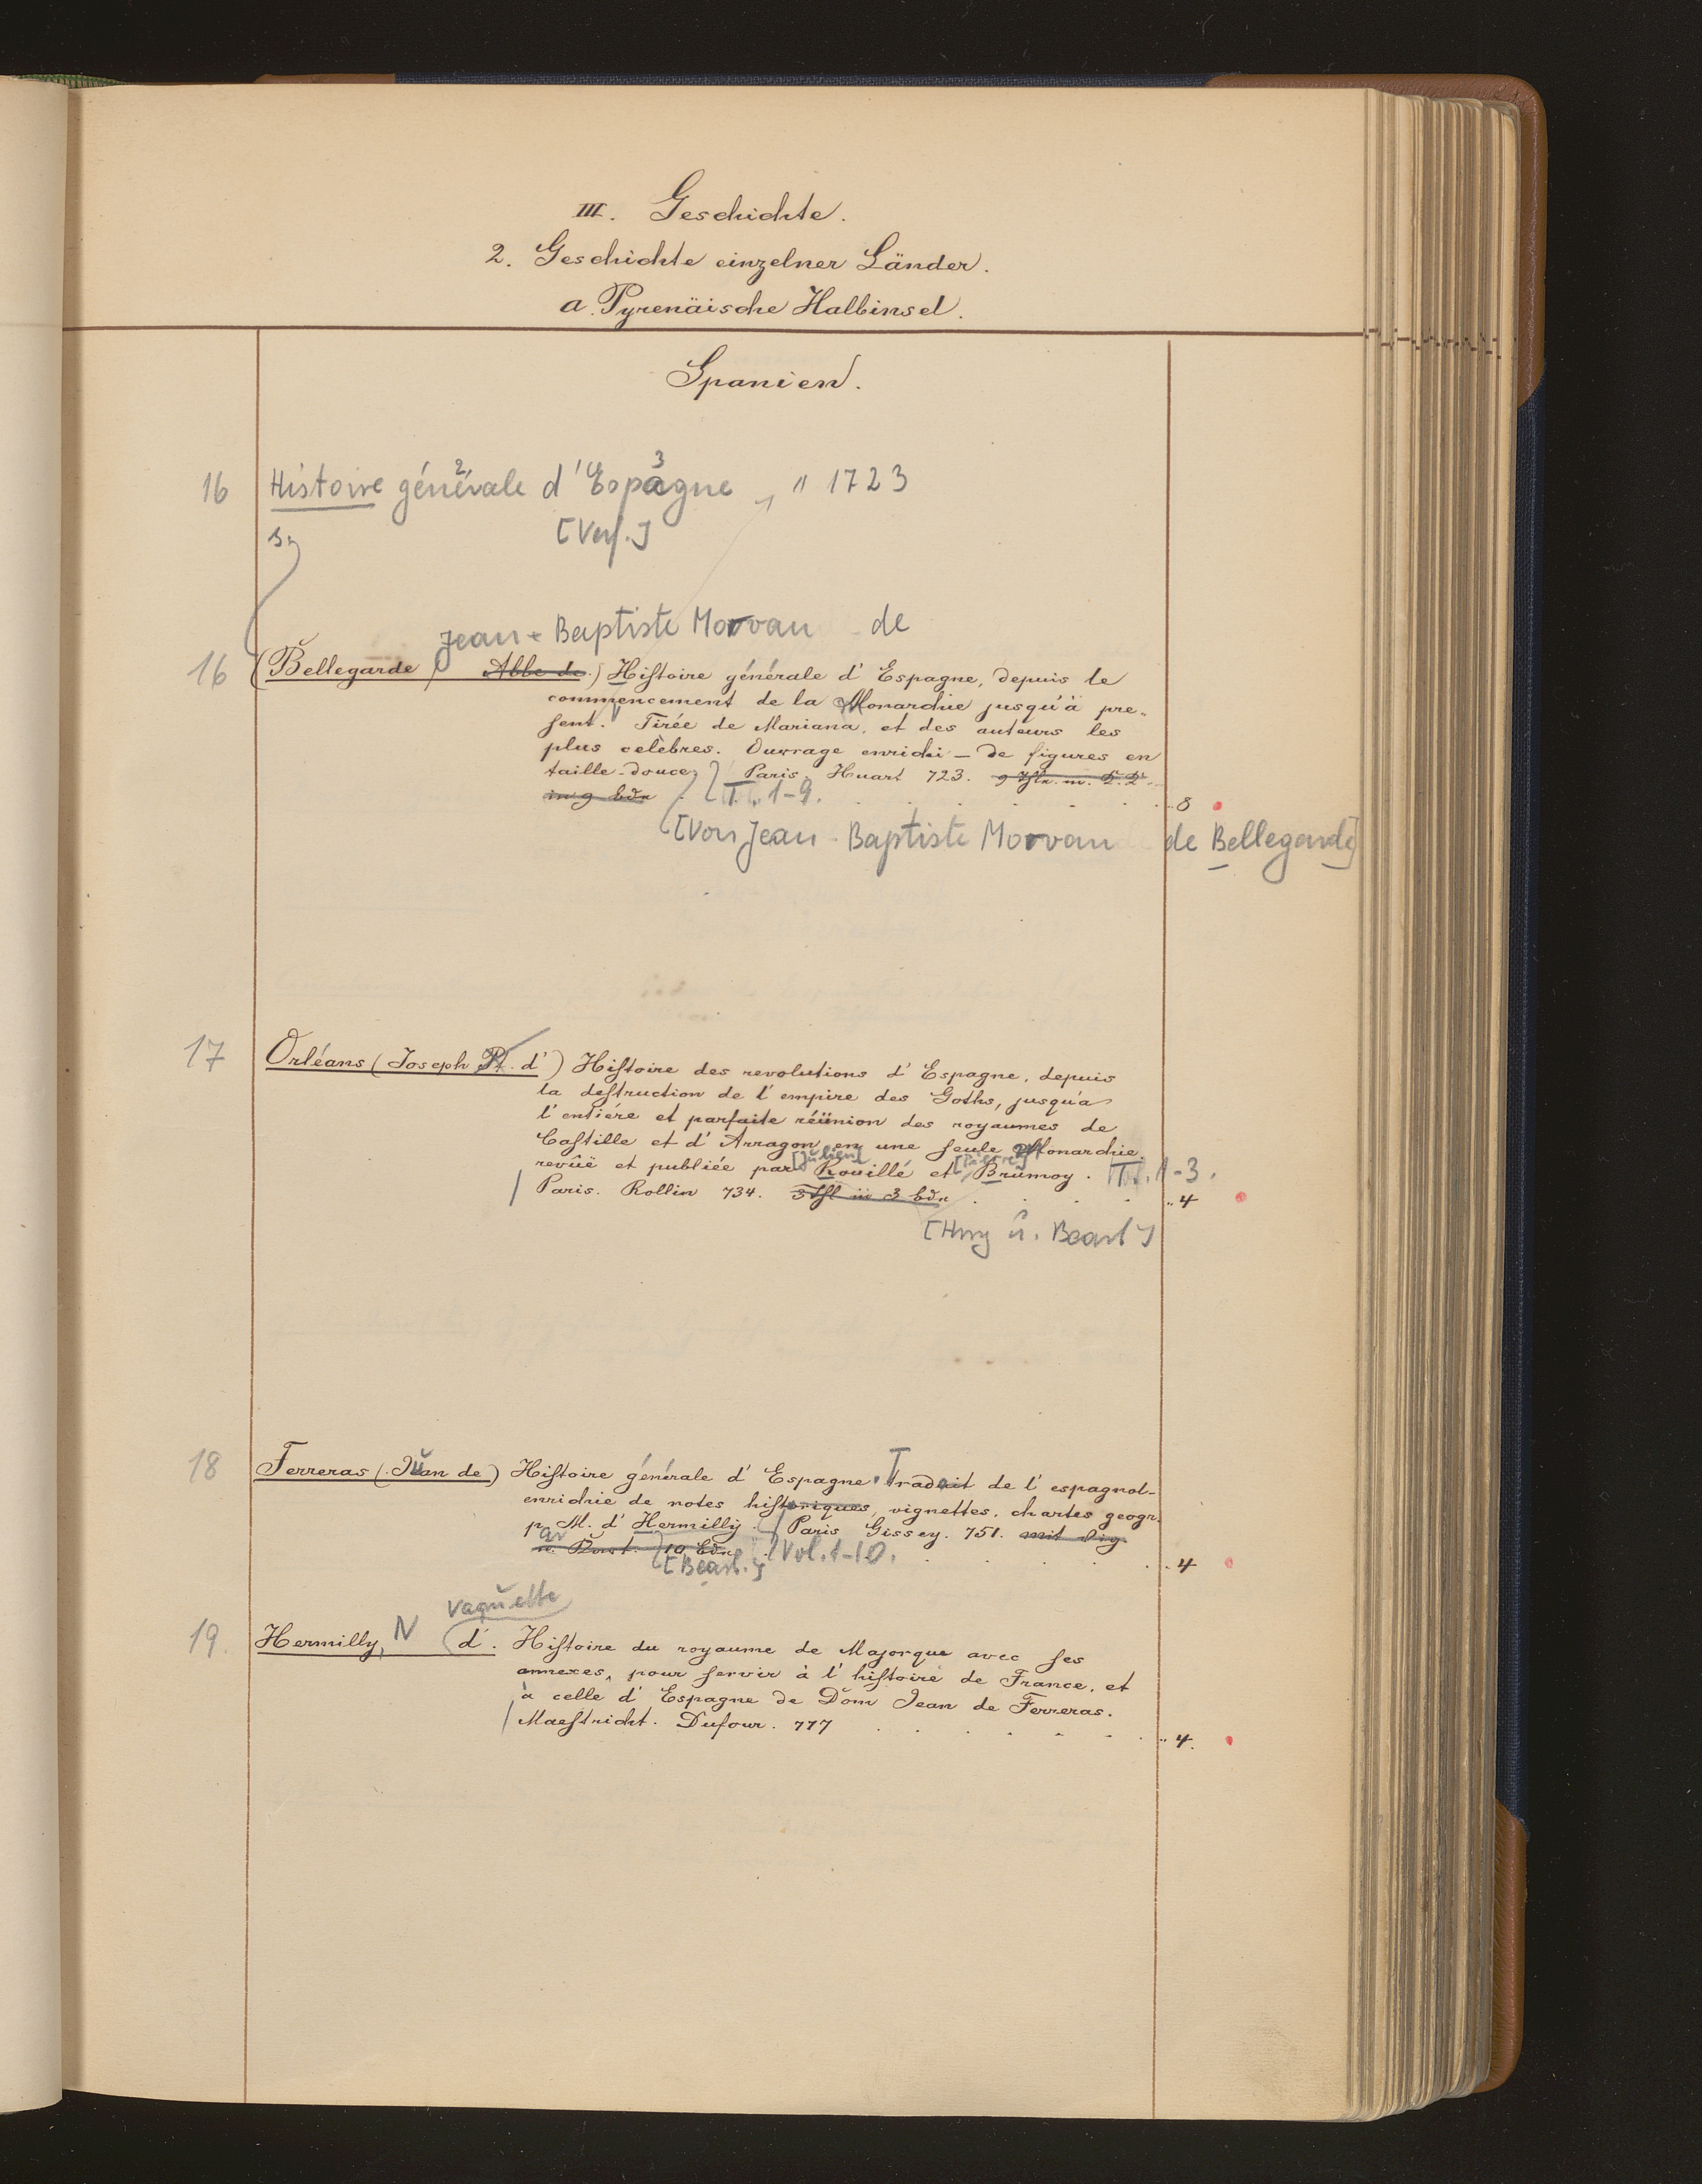 III. Geschichte.
2. Geschichte einzelner Länder.
a. Pyrenäische Halbinsel.
Spanien.
16 Histoire générale d'Espagne " 1723
2 3
[Verf.]
Jean-Baptiste Morvan de
16 (Bellegarde, Abbe de.) Histoire générale d'Espagne, depuis le
commencement de la Monarchie jusqu'à pre-
sent. Tirée de Mariana, et des auteurs les
plus celèbres. Ouvrage enrichi - de figures en
taille-douce. Paris. Huart 723.
in 9 bdn T. 1-9. 8
[Von Jean-Baptiste Morvan de Bellegarde]
17 Orléans (Joseph d') Histoire des revolutions d'Espagne, depuis
la destruction de l'empire des Goths, jusqu'a
l'entiére et parfaite réünion des royaumes de
Castille et d'Arragon en une seule Monarchie.
revûë et publiée par [Julien] Rouillé et [Pierre] Brumoy. T. 1-3.
Paris. Rollin 734. 3 bdn " 4
[Hrsg u. Bearb.]
18 Ferreras (Juan de) Histoire générale d'Espagne. Traduit de l'espagnol-
enrichie de notes historiques, vignettes, chartes geogr.
par M. d'Hermilly. Paris Gissey. 751. mit Vig.
10 bdn Vol. 1-10. " 4
[Bearb.]
Vaquette
19. Hermilly, N d'. Histoire du royaume de Majorque avec ses
annexes, pour servir à l'histoire de France, et
à celle d'Espagne de Dom Jean de Ferreras.
Maestricht. Dufour. 777 " 4.